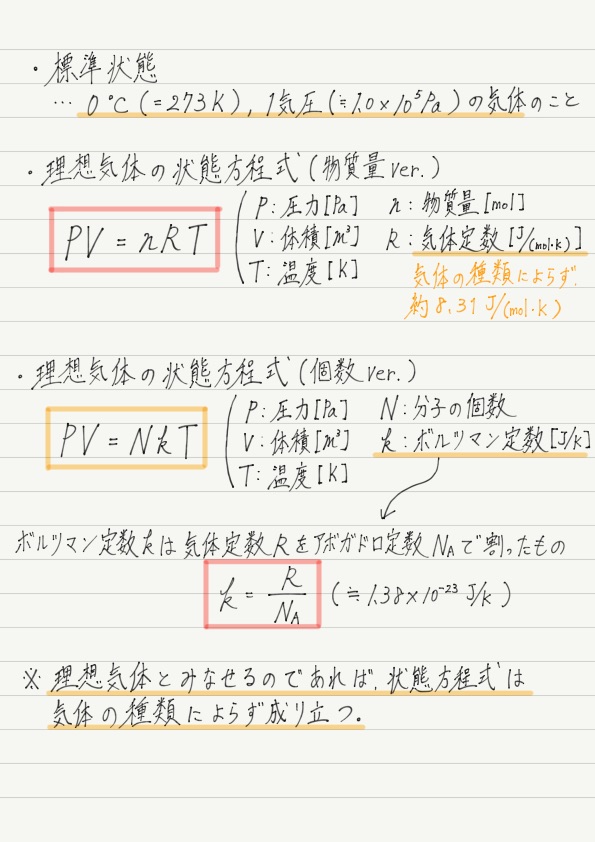 ・標準状態
… 0℃ (=273K), 1気圧(≒1.0×10⁵Pa)の気体のこと
・理想気体の状態方程式(物質量ver.)
PV = nRT
P:圧力[Pa] n:物質量[mol]
V:体積[m³] R:気体定数[J/(mol・k)]
T:温度[K]
気体の種類によらず、
約8.31 J/(mol・k)
・理想気体の状態方程式(個数ver.)
PV = NkT
P:圧力[Pa] N:分子の個数
V:体積[m³] k:ボルツマン定数[J/k]
T:温度[K]
ボルツマン定数kは気体定数Rをアボガドロ定数NAで割ったもの
k = R/NA (≒1.38×10⁻²³ J/k)
※ 理想気体とみなせるのであれば、状態方程式は
気体の種類によらず成り立つ。